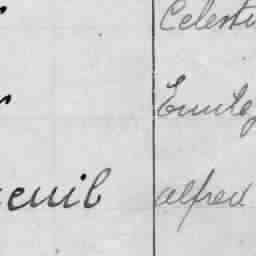 Celesti
Emile
euil alfred